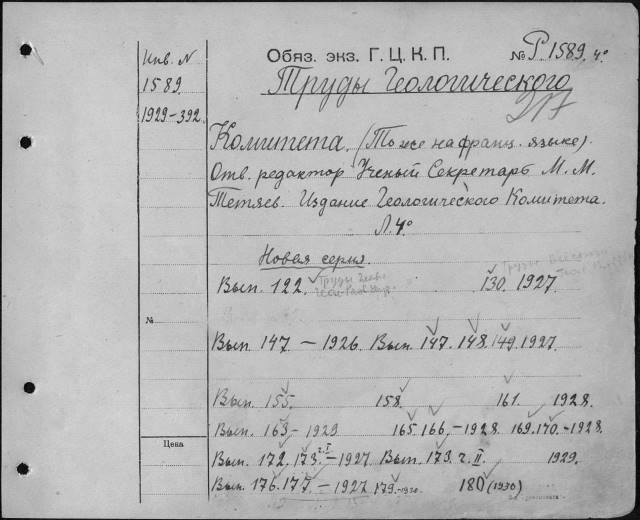 Инв. N
1589
1929-392.
Обяз. экз. Г. Ц. К. П. № Р1589. 4°
Труды Геологического
217
Комитета. (То же на франц. языке).
Отв. редактор Ученый Секретарь М. М.
Тетяев. Издание Геологического Комитета.
Л. 4°
Новая серия.
Вып. 122. Труды 130. 1927.
№
Вып. 147 - 1926. Вып. 147. 148. 149. 1927.
Вып. 155. 158. 161. 1928.
Вып. 163 - 1929 165. 166. - 1928. 169. 170. - 1928.
Цена
Вып. 172. 173. ч. I - 1927 Вып. 173. ч. II. 1929.
Вып. 176. 177. - 1927 179. - 1930 180 (1930)